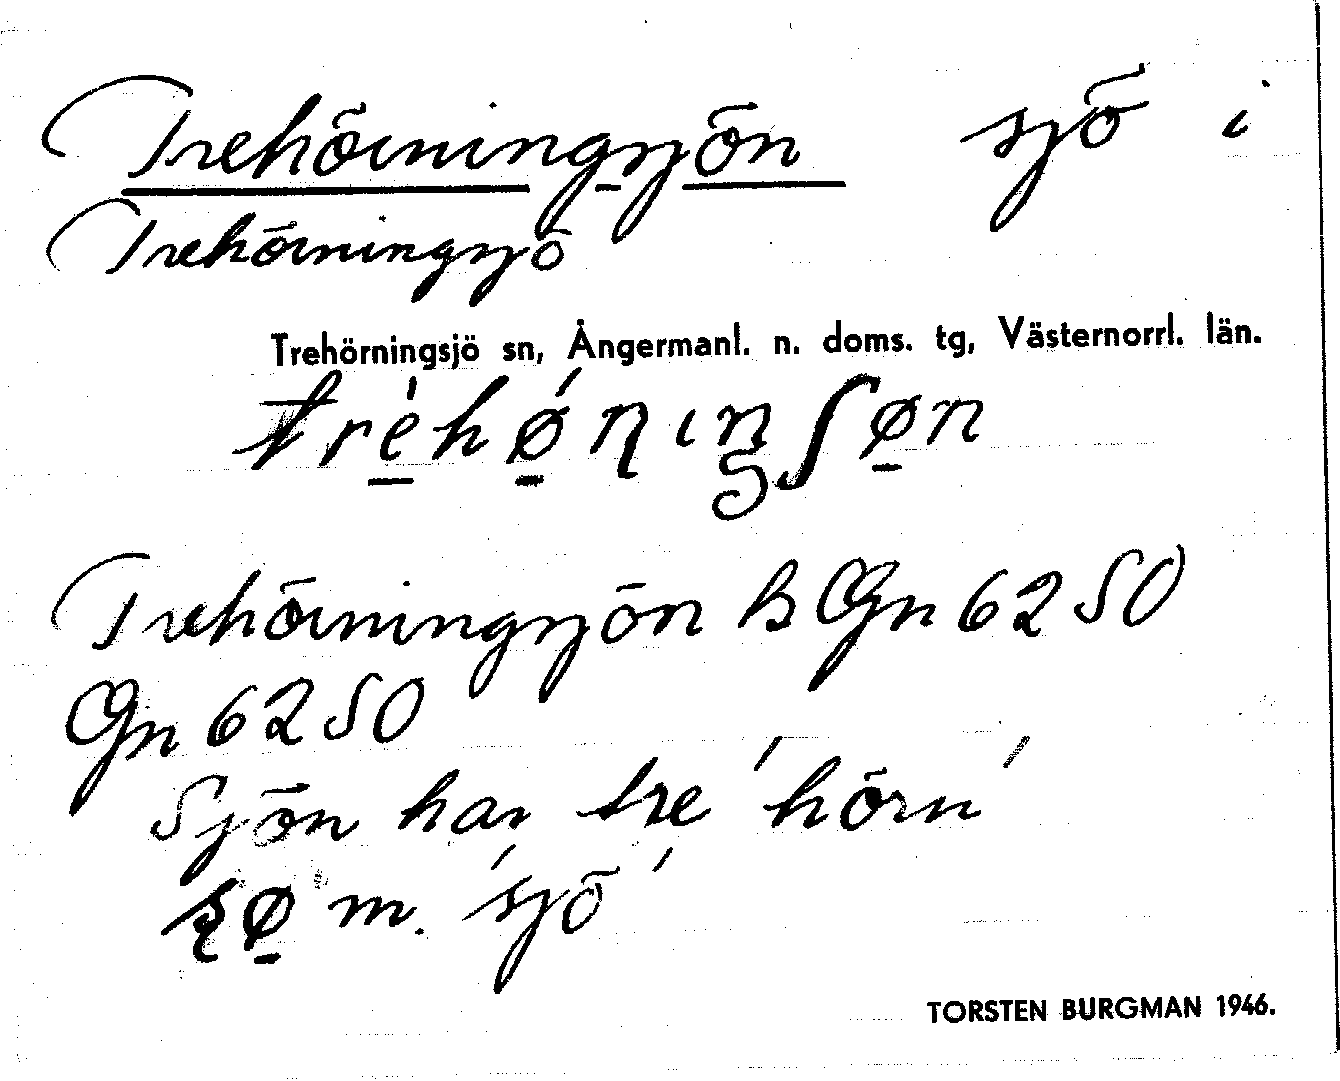 Trehörningsjön sjö i
Trehörningsjö
Trehörningsjö sn, Ångermanl. n. doms. tg, Västernorrl. län.
Trehörningsjön B Gn 6250
Gn 6250
Sjön har tre 'hörn'
m. 'sjö'
TORSTEN BURGMAN 1946.